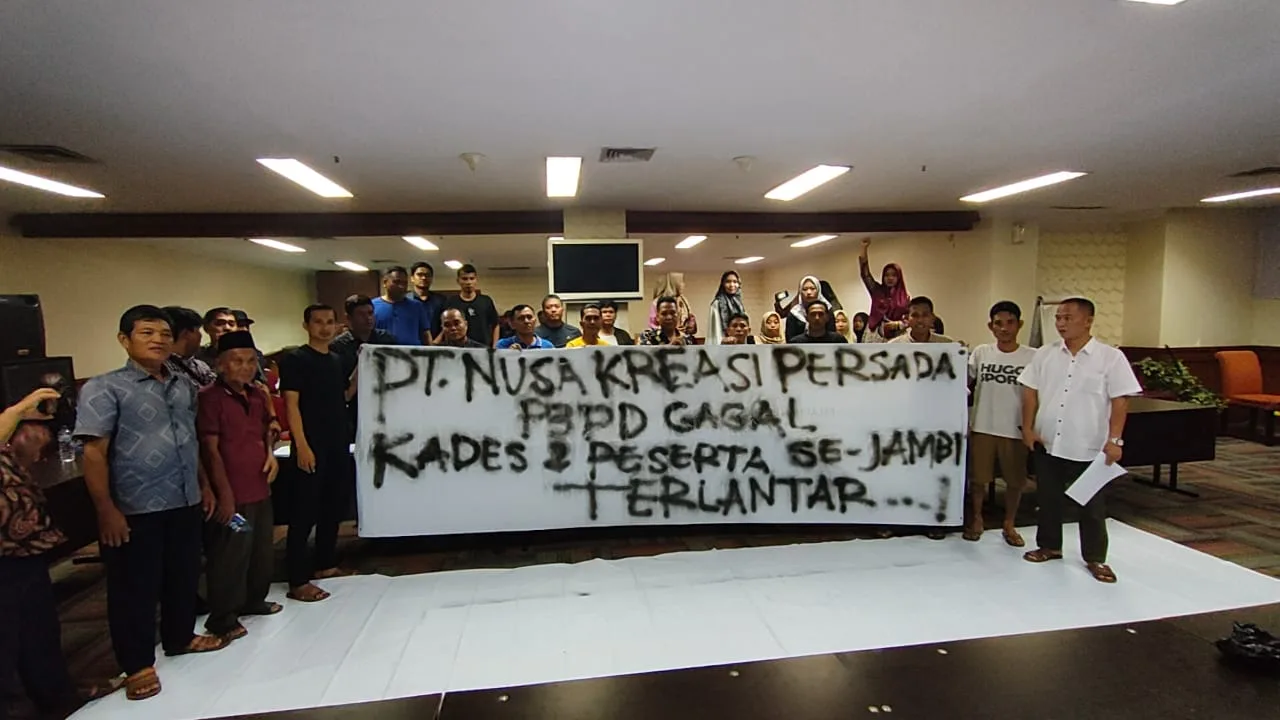 PT. NUSA KREASI PERSADA
P3PD GAGAL
KADES 2 PESERTA SE-JAMBI
TERLANTAR...!
HUGO
SPORT